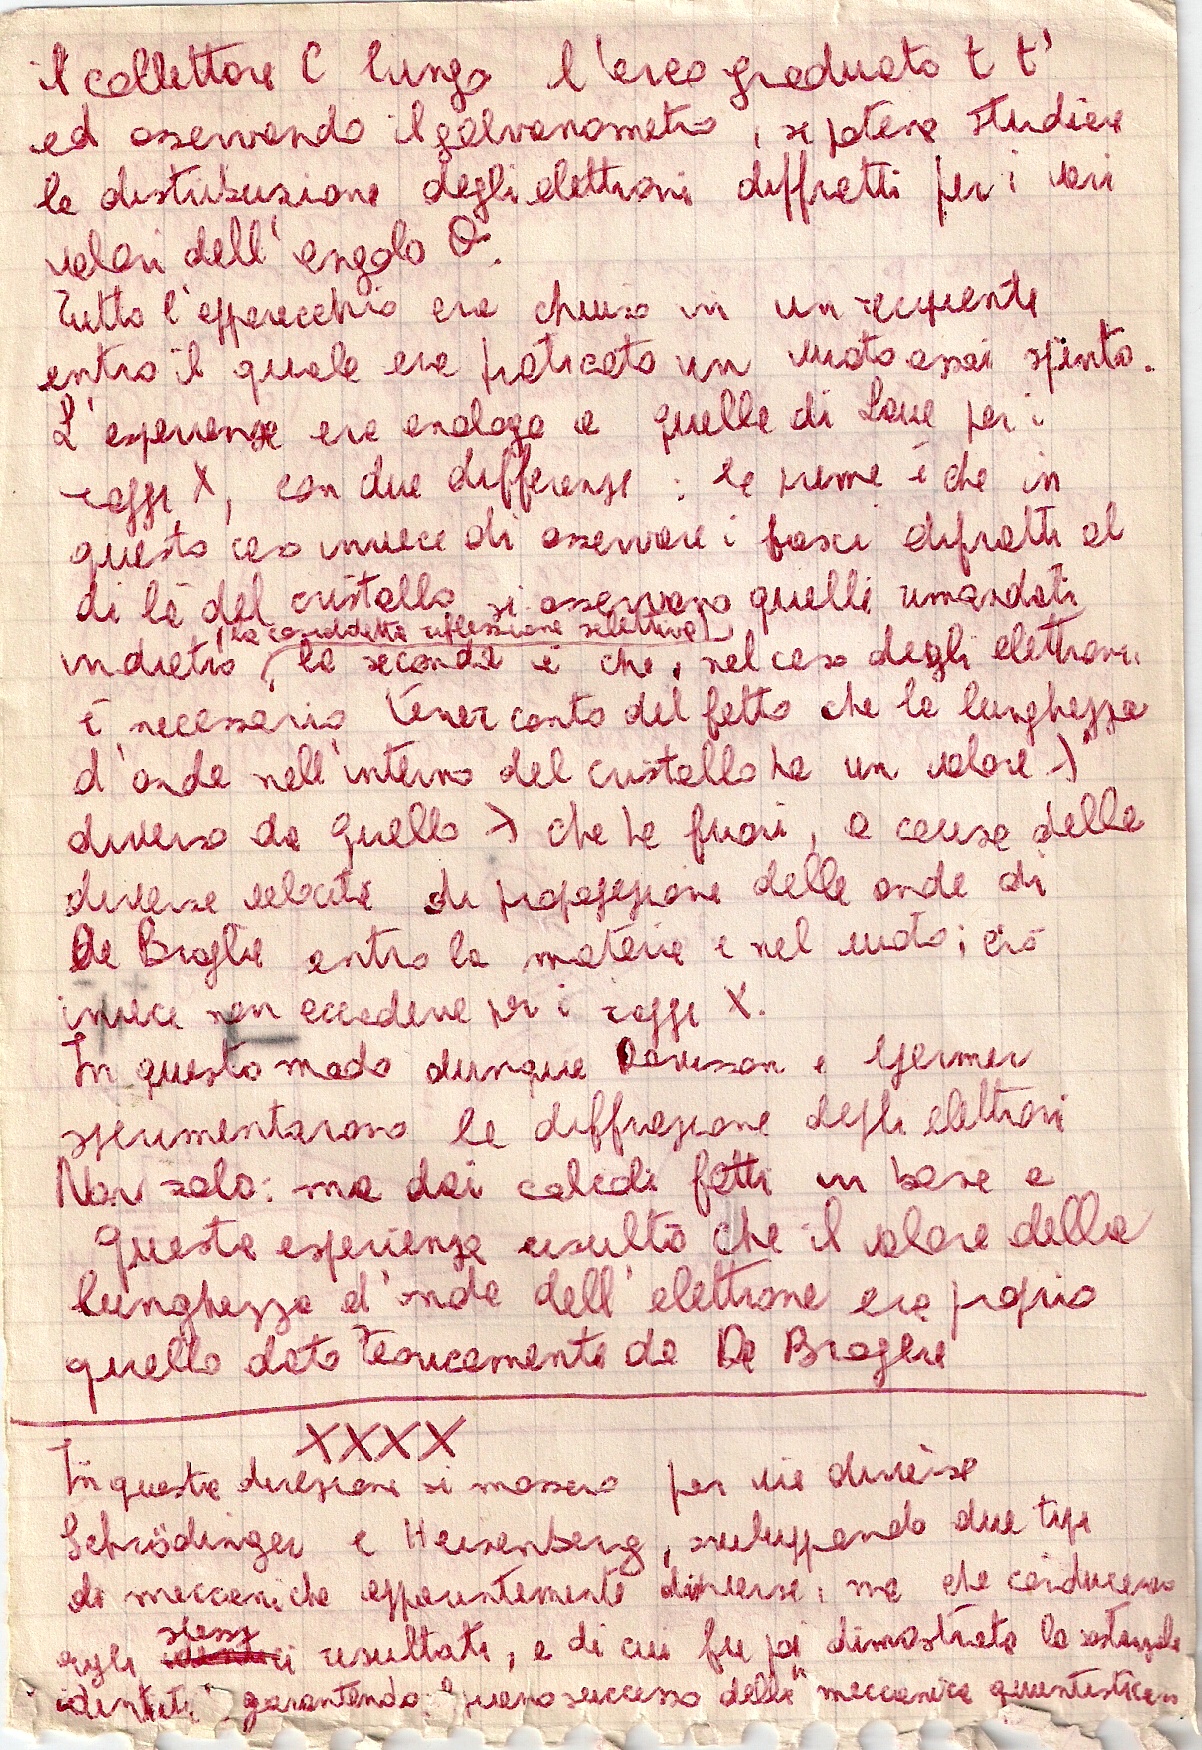 il collettore C lungo l'arco graduato t t'
ed osservando il galvanometro, si poteva studiare
la distribuzione degli elettroni diffratti per i vari
valori dell'angolo θ.
Tutto l'apparecchio era chiuso in un recipiente
entro il quale era praticato un vuoto assai spinto.
L'esperienza era analoga a quella di Laue per i
raggi X, con due differenze: la prima è che in
questo caso invece di osservare i fasci difratti al
di là del cristallo si osservano quelli rimandati
(la cosiddetta riflessione selettiva)
indietro, la seconda è che, nel caso degli elettroni
è necessario tener conto del fatto che la lunghezza
d'onda nell'interno del cristallo ha un valore λ'
diverso da quello λ che ha fuori, a causa della
diversa velocità di propagazione delle onde di
De Broglie entro la materia e nel vuoto; ciò
invece non accadeva per i raggi X.
In questo modo dunque Davisson e Germer
sperimentarono la diffrazione degli elettroni
Non solo: ma dai calcoli fatti in base a
questa esperienza risultò che il valore della
lunghezza d'onda dell'elettrone era proprio
quello dato teoricamente da De Broglie
XXXX
In questa direzione si mossero per vie diverse
Schrödinger e Heisenberg, sviluppando due tipi
di meccaniche apparentemente diverse, ma che conducevano
stessi
agli risultati, e di cui fu poi dimostrata la sostanziale
identità, garantendo pieno successo della "meccanica quantistica"